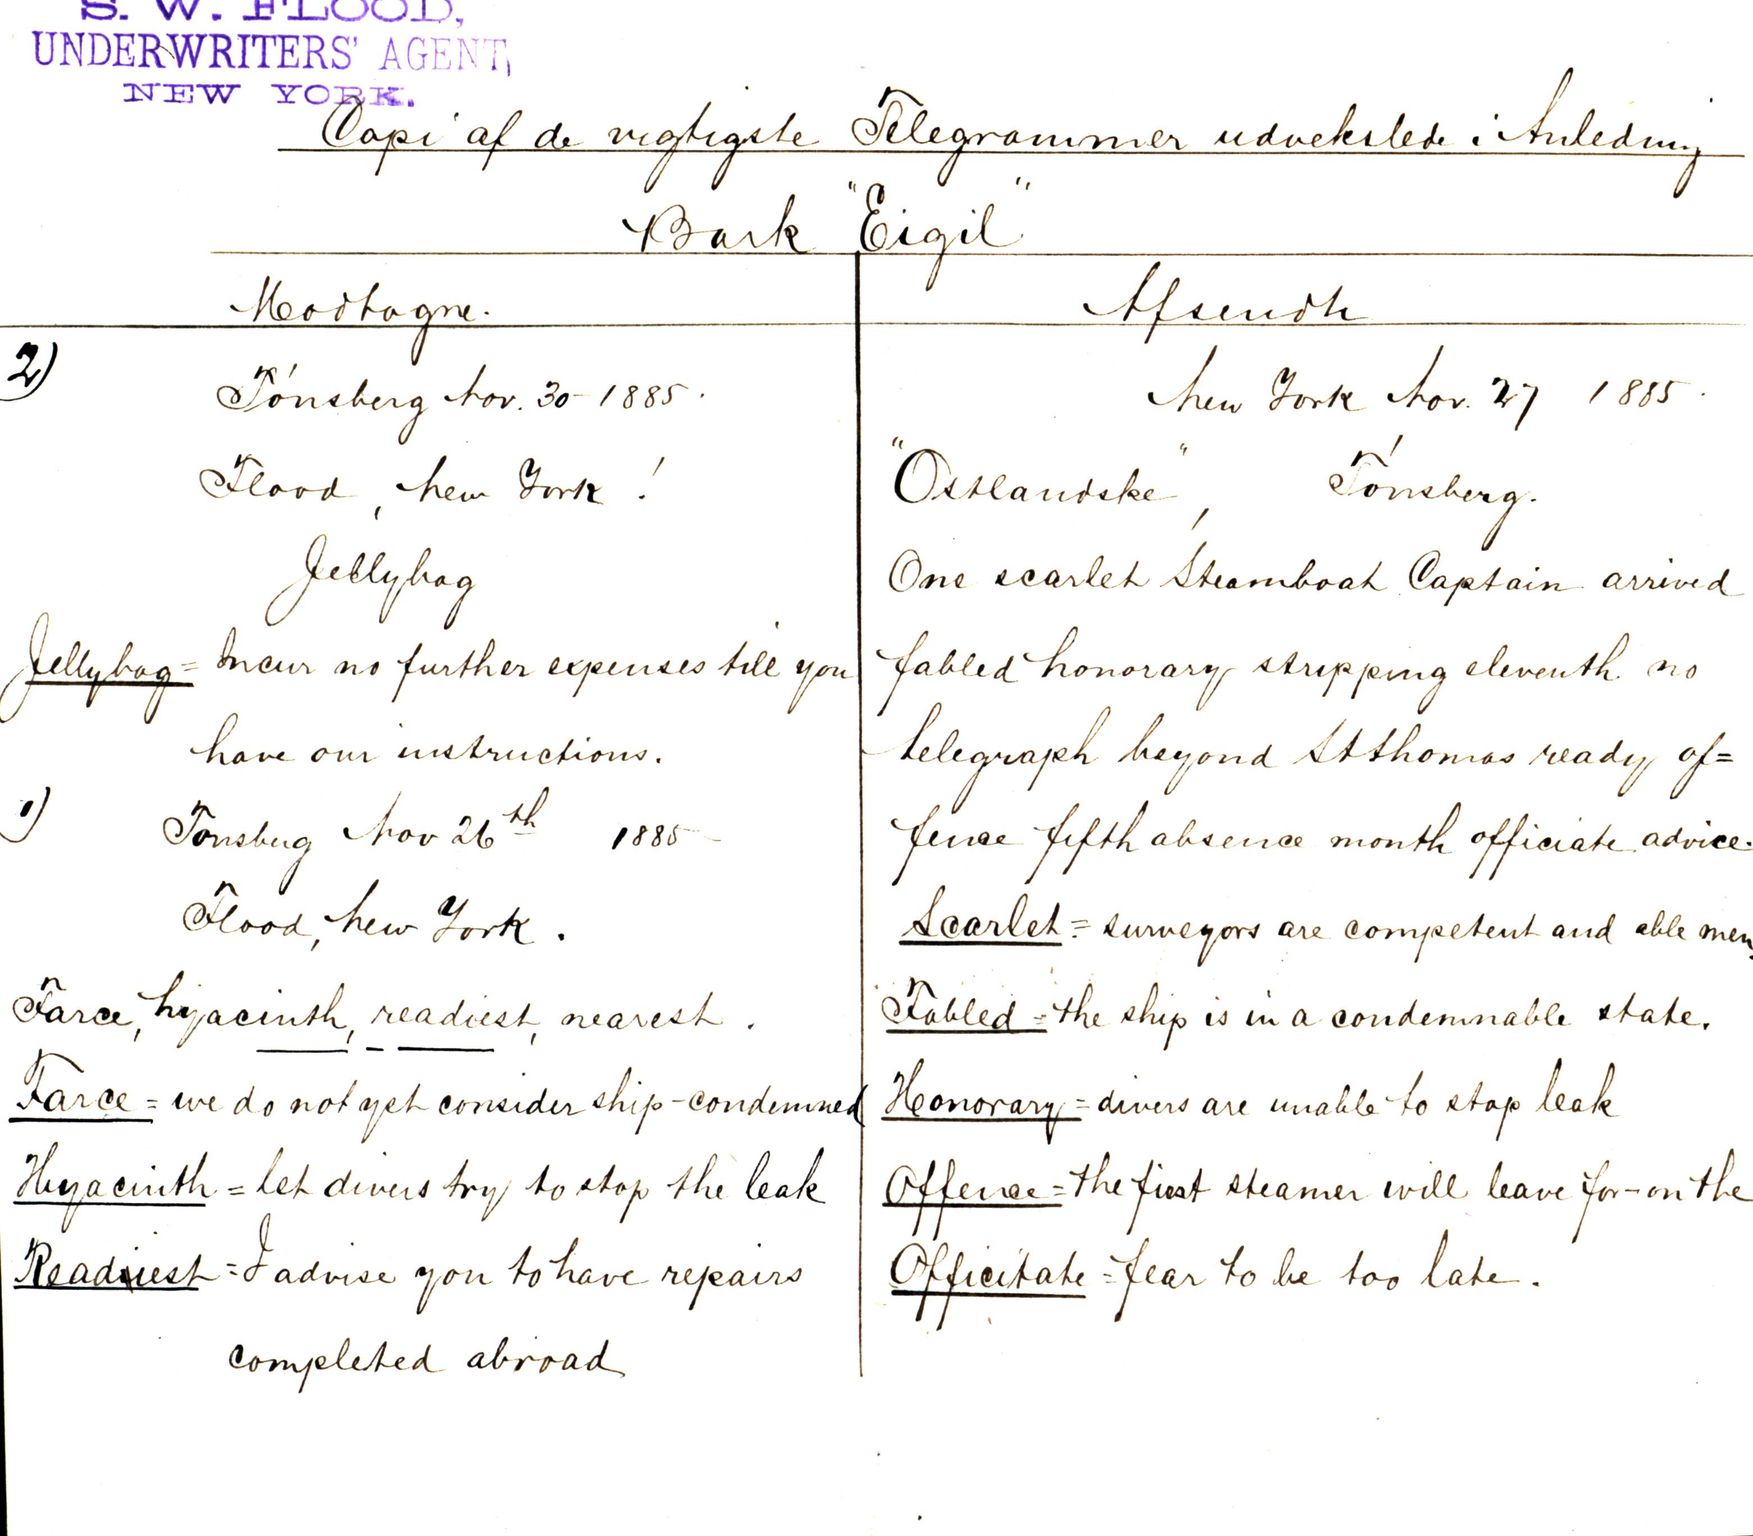 S. W. FLOOD,
UNDERWRITERS' AGENT,
NEW YORK.
Copi af de vigtigste Telegrammer udvekslede i Anledning
Bark "Eigil"
Modtagne.
2)
Tönsberg Nov. 30 - 1885.
Flood, New York!
Jellybag
Jellybag = Incur no further expenses till you
have our instructions.
1)
Tonsberg Nov 26th 1885 -
Flood, New York.
Farce, hyacinth, readiest, nearest.
Farce = we do not yet consider ship - condemned
Hyacinth = let divers try to stop the leak
Readiest = I advise you to have repairs
completed abroad
Afsendte
New York Nov. 27 1885.
"Ostlandske", Tönsberg.
One scarlet Steamboat Captain arrived
fabled honorary stripping eleventh no
telegraph beyond St Thomas ready of=
fence fifth absence month officiate advice.
Scarlet = surveyors are competent and able men,
Fabled = the ship is in a condemnable state.
Honorary = divers are unable to stop leak
Offence = the first steamer will leave for - on the
Officitate = fear to be too late.